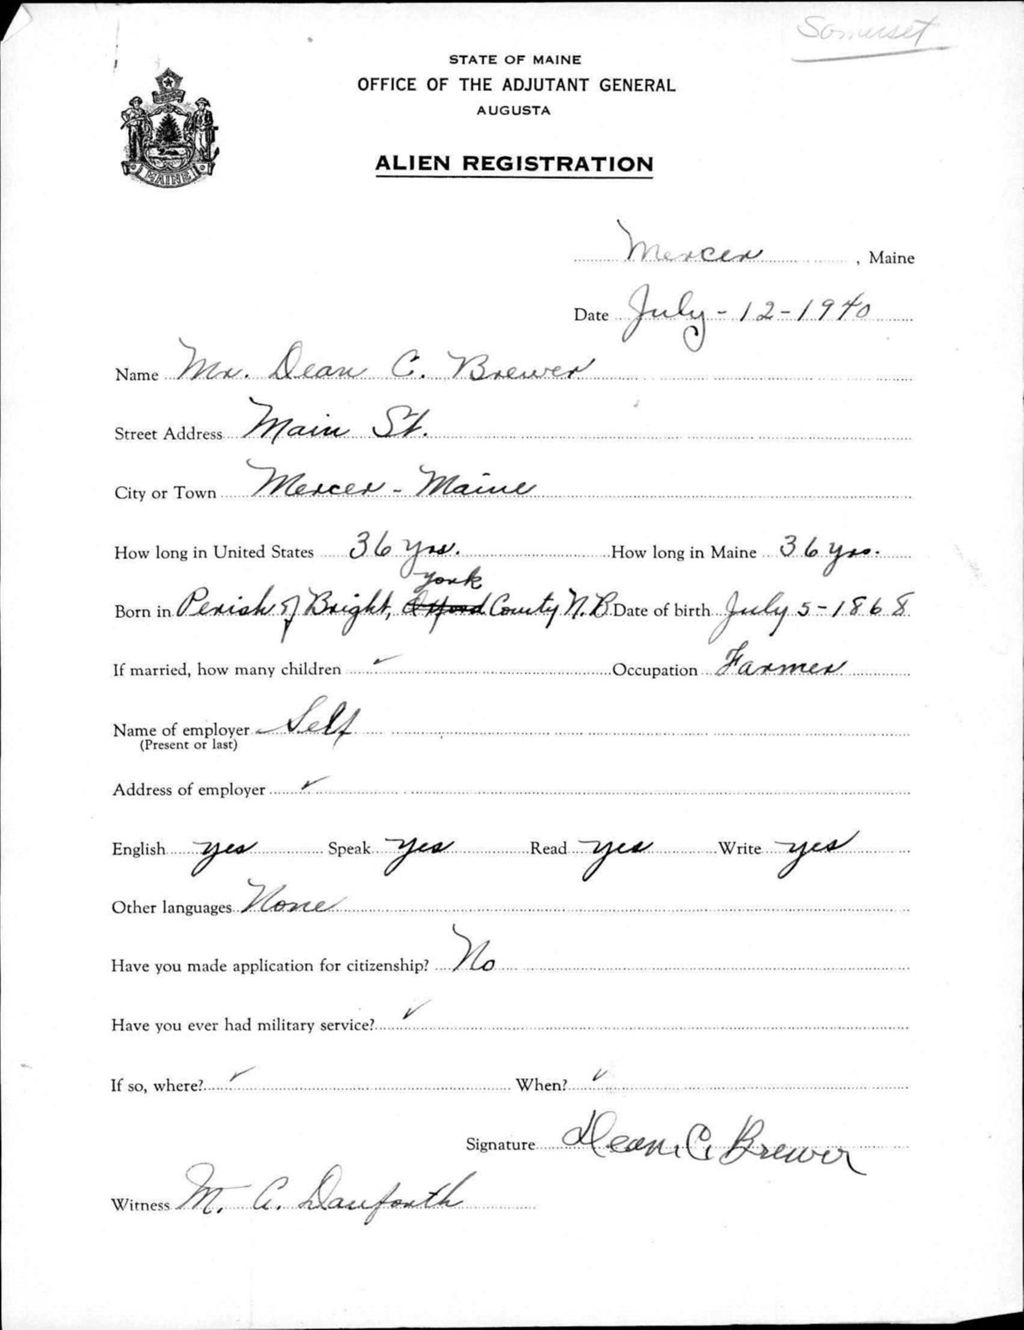 Somerset
STATE OF MAINE
OFFICE OF THE ADJUTANT GENERAL
AUGUSTA
ALIEN REGISTRATION
MAINE
Mercer, Maine
Date July-12-1940
Name Mr. Dean C. Brewer
Street Address Main St.
City or Town Mercer - Maine
How long in United States 36 yrs. How long in Maine 36 yrs.
York
Born in Perish of Bright, County N.B. Date of birth July 5-1868
If married, how many children ✓ Occupation Farmer
Name of employer Self
(Present or last)
Address of employer ✓
English yes Speak yes Read yes Write yes
Other languages None
Have you made application for citizenship? No
Have you ever had military service? ✓
If so, where? ✓ When? ✓
Signature Dean. C. Brewer
Witness M. A. Danforth